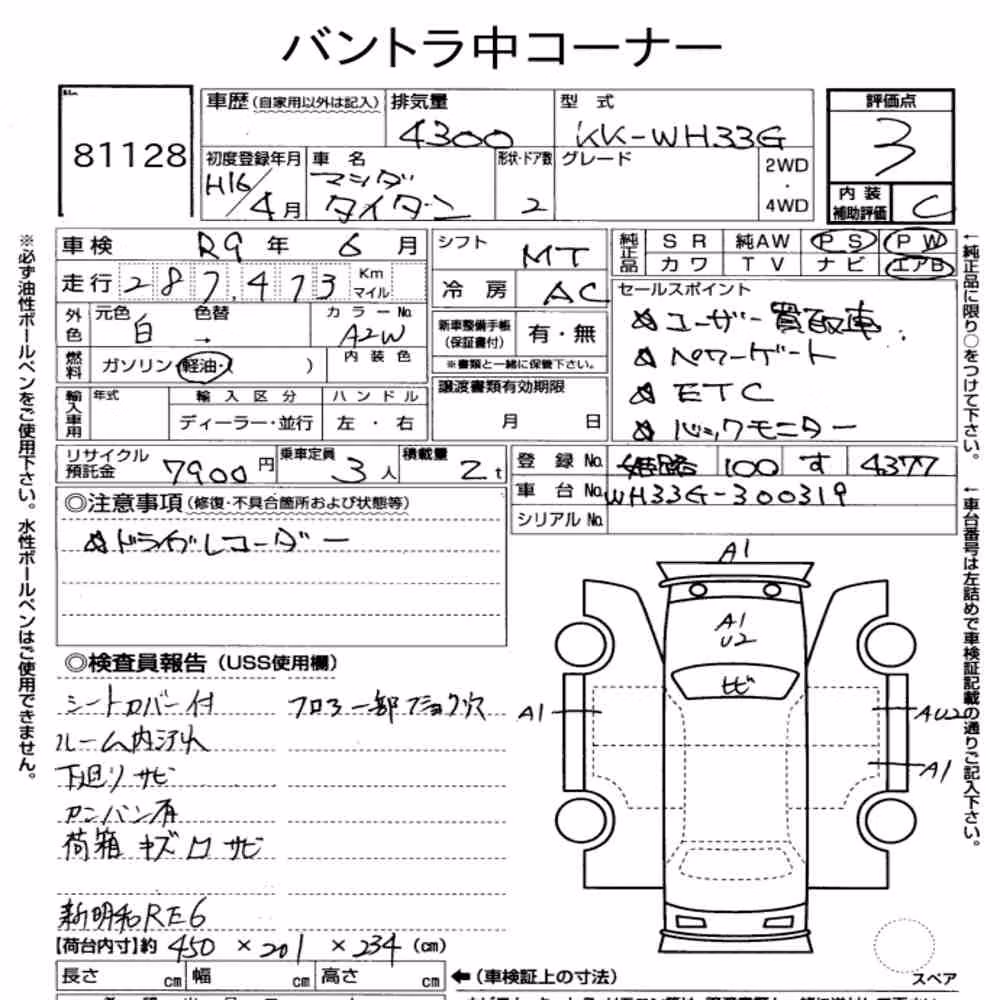 バントラ中コーナー
81128
車歴(自家用以外は記入) 排気量 4300 型式 KK-WH33G
評価点 3
内装補助評価 C
初度登録年月 H16/4月 車名 マツダ タイタン 形状・ドア数 2 グレード 2WD・4WD
※必ず油性ボールペンをご使用下さい。水性ボールペンはご使用できません。
車検 R9年 6月
走行 287,473 Km マイル
外色 元色 白 → 色替 カラーNo. A2W
燃料 ガソリン・軽油・( ) 内装色
輸入車用 年式 輸入区分 ディーラー・並行 ハンドル 左・右
シフト MT
冷房 AC
新車整備手帳(保証書付) 有・無
※書類と一緒に保管下さい。
譲渡書類有効期限 月 日
純正品 SR 純AW PS PW
カワ TV ナビ エアB
セールスポイント
☆ユーザー買取車
☆パワーゲート
☆ETC
☆バックモニター
←純正品に限り○をつけて下さい。
リサイクル預託金 7900円 乗車定員 3人 積載量 2t
登録No. 姫路 100 す 4377
車台No. WH33G-300319
シリアルNo.
←車台番号は左詰めで車検証記載の通りご記入下さい。
◎注意事項(修復・不具合箇所および状態等)
☆ドライブレコーダー
◎検査員報告(USS使用欄)
シートカバー付 フロアー部
ルーム内汚れ
下廻りサビ
アンバン有
荷箱 キズ凹サビ
新明和RE6
【荷台内寸】約 450 × 201 × 234 (cm)
長さ cm 幅 cm 高さ cm ←(車検証上の寸法)
A1
A1
U2
ヒビ
A1
AU2
A1
スペア